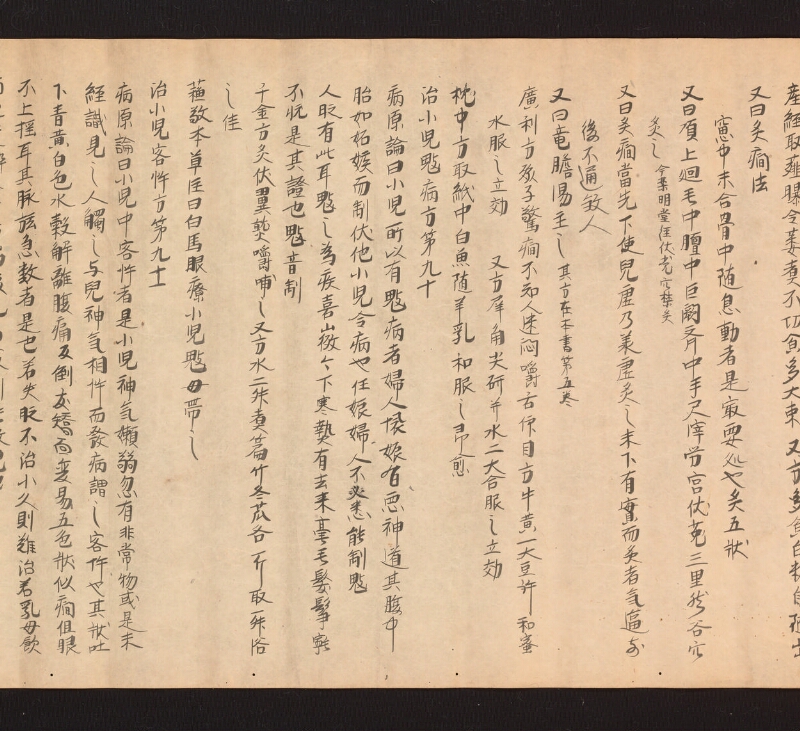 産經取薤
又曰灸癇法
窓中未合骨中随息動者是㝡要処也灸五壯
又曰項上廻毛中膻中巨闕齊中手尺宰勞宮伏菟三里然谷穴
灸之 今案明堂注伏菟穴禁灸
又曰灸癇當先下使兒虚乃義虚灸之未下有實而灸者氣逼前
後不通殺人
又曰竜膽湯主之 其方在本書第五卷
廣利方療子驚癇不知人迷悶嚼舌仰目方牛黄一大豆許和蜜
水服之立効 又方犀角尖研并水二大合服之立効
枕中方取紙中白魚随羊乳和服之即愈
治小児鬾病方第九十
病原論曰小児所以有鬾病者婦人懐娠有悪神導其腹中
胎如妬娭而制伏他小児令病也任娘婦人不必悉能制鬾
人耴有此耳鬾之為疾喜山微々下寒熱有去来毫毛髪鬡寧
不恱是其證也鬾音制
千金方灸伏翼熟嚼哺之又方水二升煮篇竹冬苽各一斤取一升浴
之佳
蘓敬本草注曰白馬眼療小児鬾母帯之
治小児客忤方第九十一
病原論曰小児中客忤者是小児神氣嬾弱忽有非常物或是未
經識見之人觸之与兒神氣相忤而發病謂之客忤也其状吐
下青黄白色水穀解離腹痛反倒友矯面变易五色状似癇但眼
不上揺耳其脉弦急数者是也若失耴不治小久則難治若乳母飲